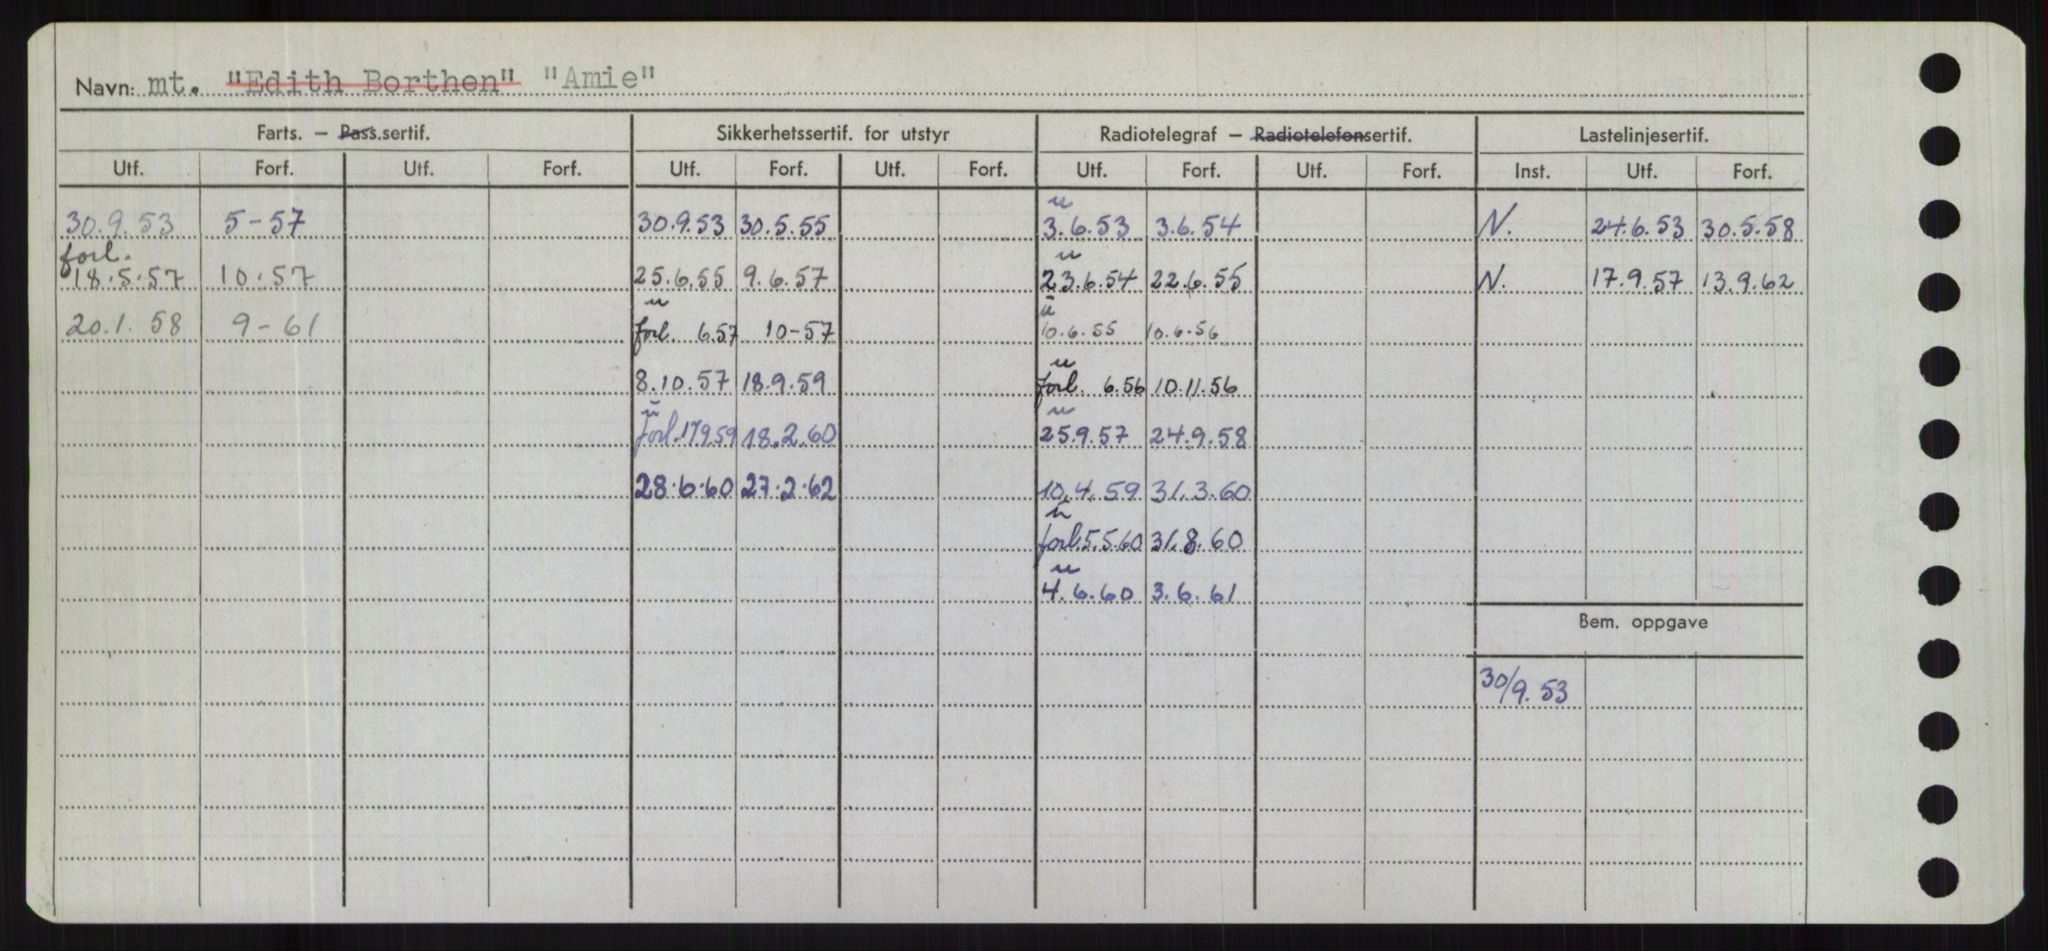 Navn: mt. "Edith Borthen" "Amie"
Farts. — Pass.sertif. Sikkerhetssertif. for utstyr Radiotelegraf — Radiotelefonsertif. Lastelinjesertif.
Utf. Forf. Utf. Forf. Utf. Forf. Utf. Forf. Utf. Forf. Utf. Forf. Inst. Utf. Forf.
u
30.9.53 5-57 30.9.53 30.5.55 3.6.53 3.6.54 N. 24.6.53 30.5.58
forl. u
18.5.57 10.57 25.6.55 9.6.57 23.6.54 22.6.55 N. 17.9.57 13.9.62
u u
20.1.58 9-61 forl. 6.57 10-57 10.6.55 10.6.56
u
8.10.57 18.9.59 forl. 6.56 10.11.56
u u
forl. 17.9.59 18.2.60 25.9.57 24.9.58
28.6.60 27.2.62 10.4.59 31.3.60
u
forl. 5.5.60 31.8.60
u
4.6.60 3.6.61
Bem. oppgave
30/9.53